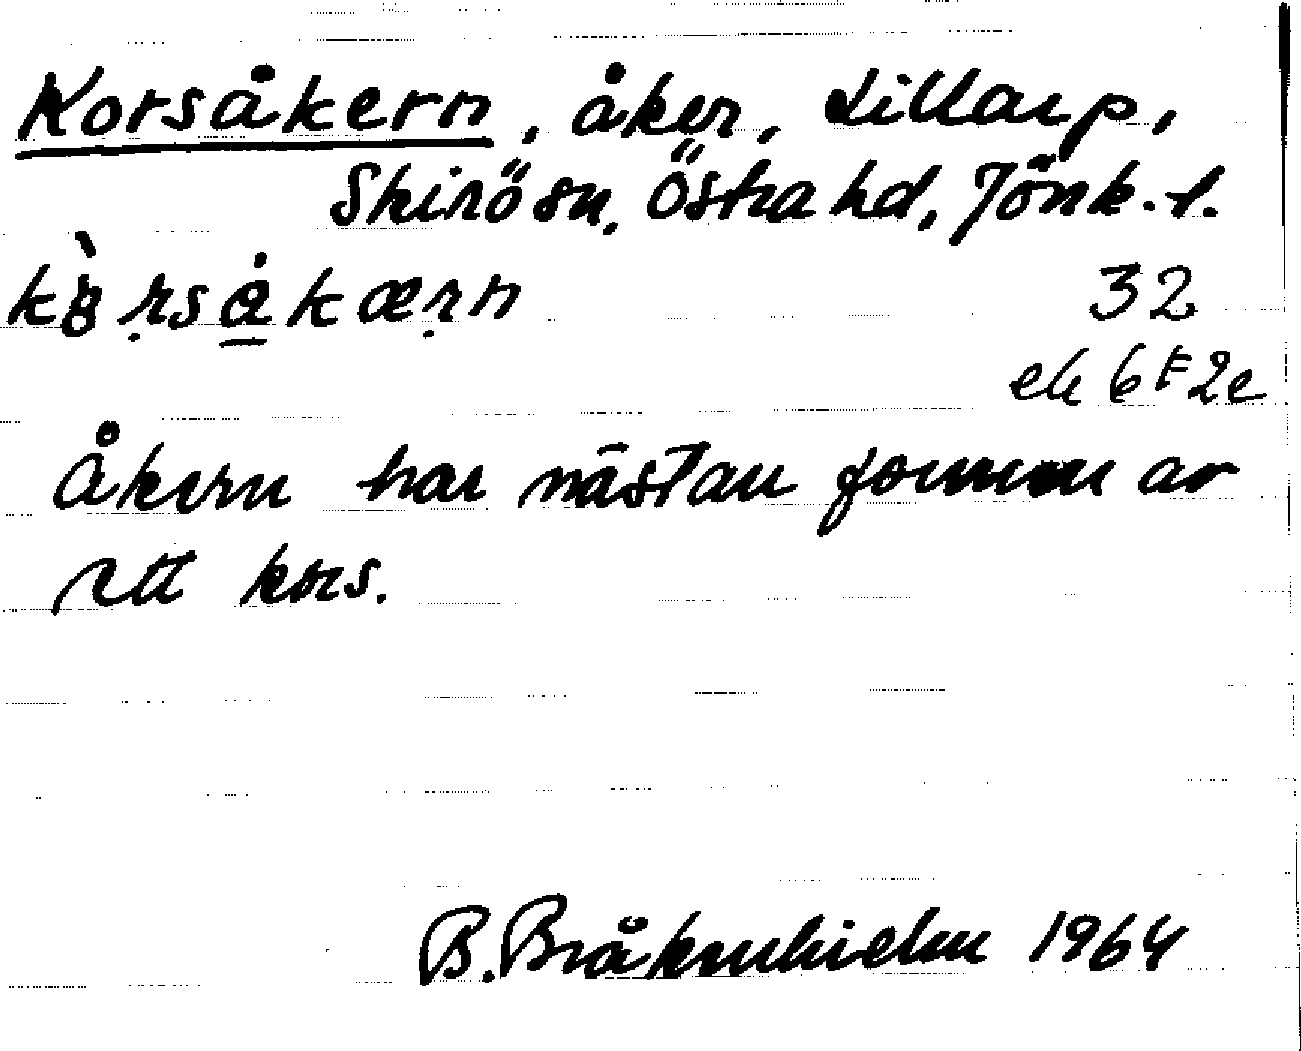 Korsåkern, åker, Lillarp,
Skirö sn, Östra hd, Jönk. l.
kòrsåkærn
32
ek 6 F 2e
Åkern har nästan formen av
ett kors.
B. Bråkenhielm 1964